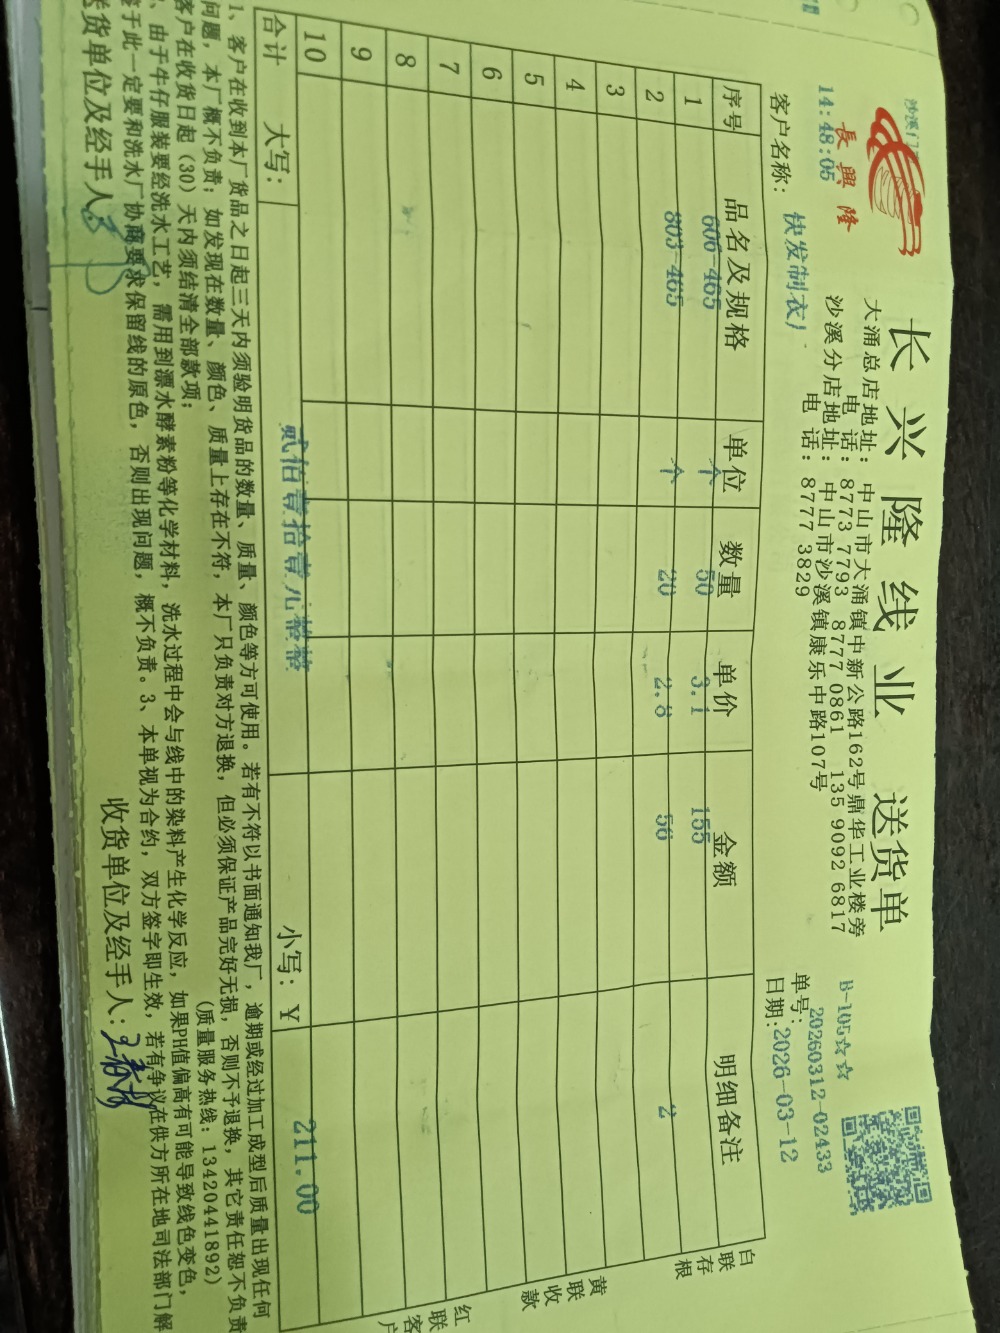 沙溪门
長興隆
14:48:05
长兴隆线业 送货单
大涌总店地址：中山市大涌镇中新公路162号鼎华工业楼旁
电 话：8773 7793 8777 0861 135 9092 6817
沙溪分店地址：中山市沙溪镇康乐中路107号
电 话：8777 3829
B-105☆☆
单号：20260312-02433
客户名称：快发制衣厂
日期：2026-03-12
序号 品名及规格 单位 数量 单价 金额 明细备注
1 606-465 个 50 3.1 155
2 803-465 个 20 2.8 56 2
3
4
5
6
7
8
9
10
合计 大写：贰佰壹拾壹元整 小写：Y 211.00
白联存根
黄联收款
红联客户
1、客户在收到本厂货品之日起三天内须验明货品的数量、质量、颜色等方可使用。若有不符以书面通知我厂，逾期或经过加工成型后质量出现任何
问题，本厂概不负责；如发现在数量、颜色、质量上存在不符，本厂只负责对方退换，但必须保证产品完好无损，否则不予退换，其它责任恕不负责
客户在收货日起（30）天内须结清全部款项；
（质量服务热线：13420441892）
、由于牛仔服装要经洗水工艺，需用到漂水酵素粉等化学材料，洗水过程中会与线中的染料产生化学反应，如果PH值偏高有可能导致线色变色，
鉴于此一定要和洗水厂协商要求保留线的原色，否则出现问题，概不负责。3、本单视为合约，双方签字即生效，若有争议在供方所在地司法部门解
送货单位及经手人：
收货单位及经手人：